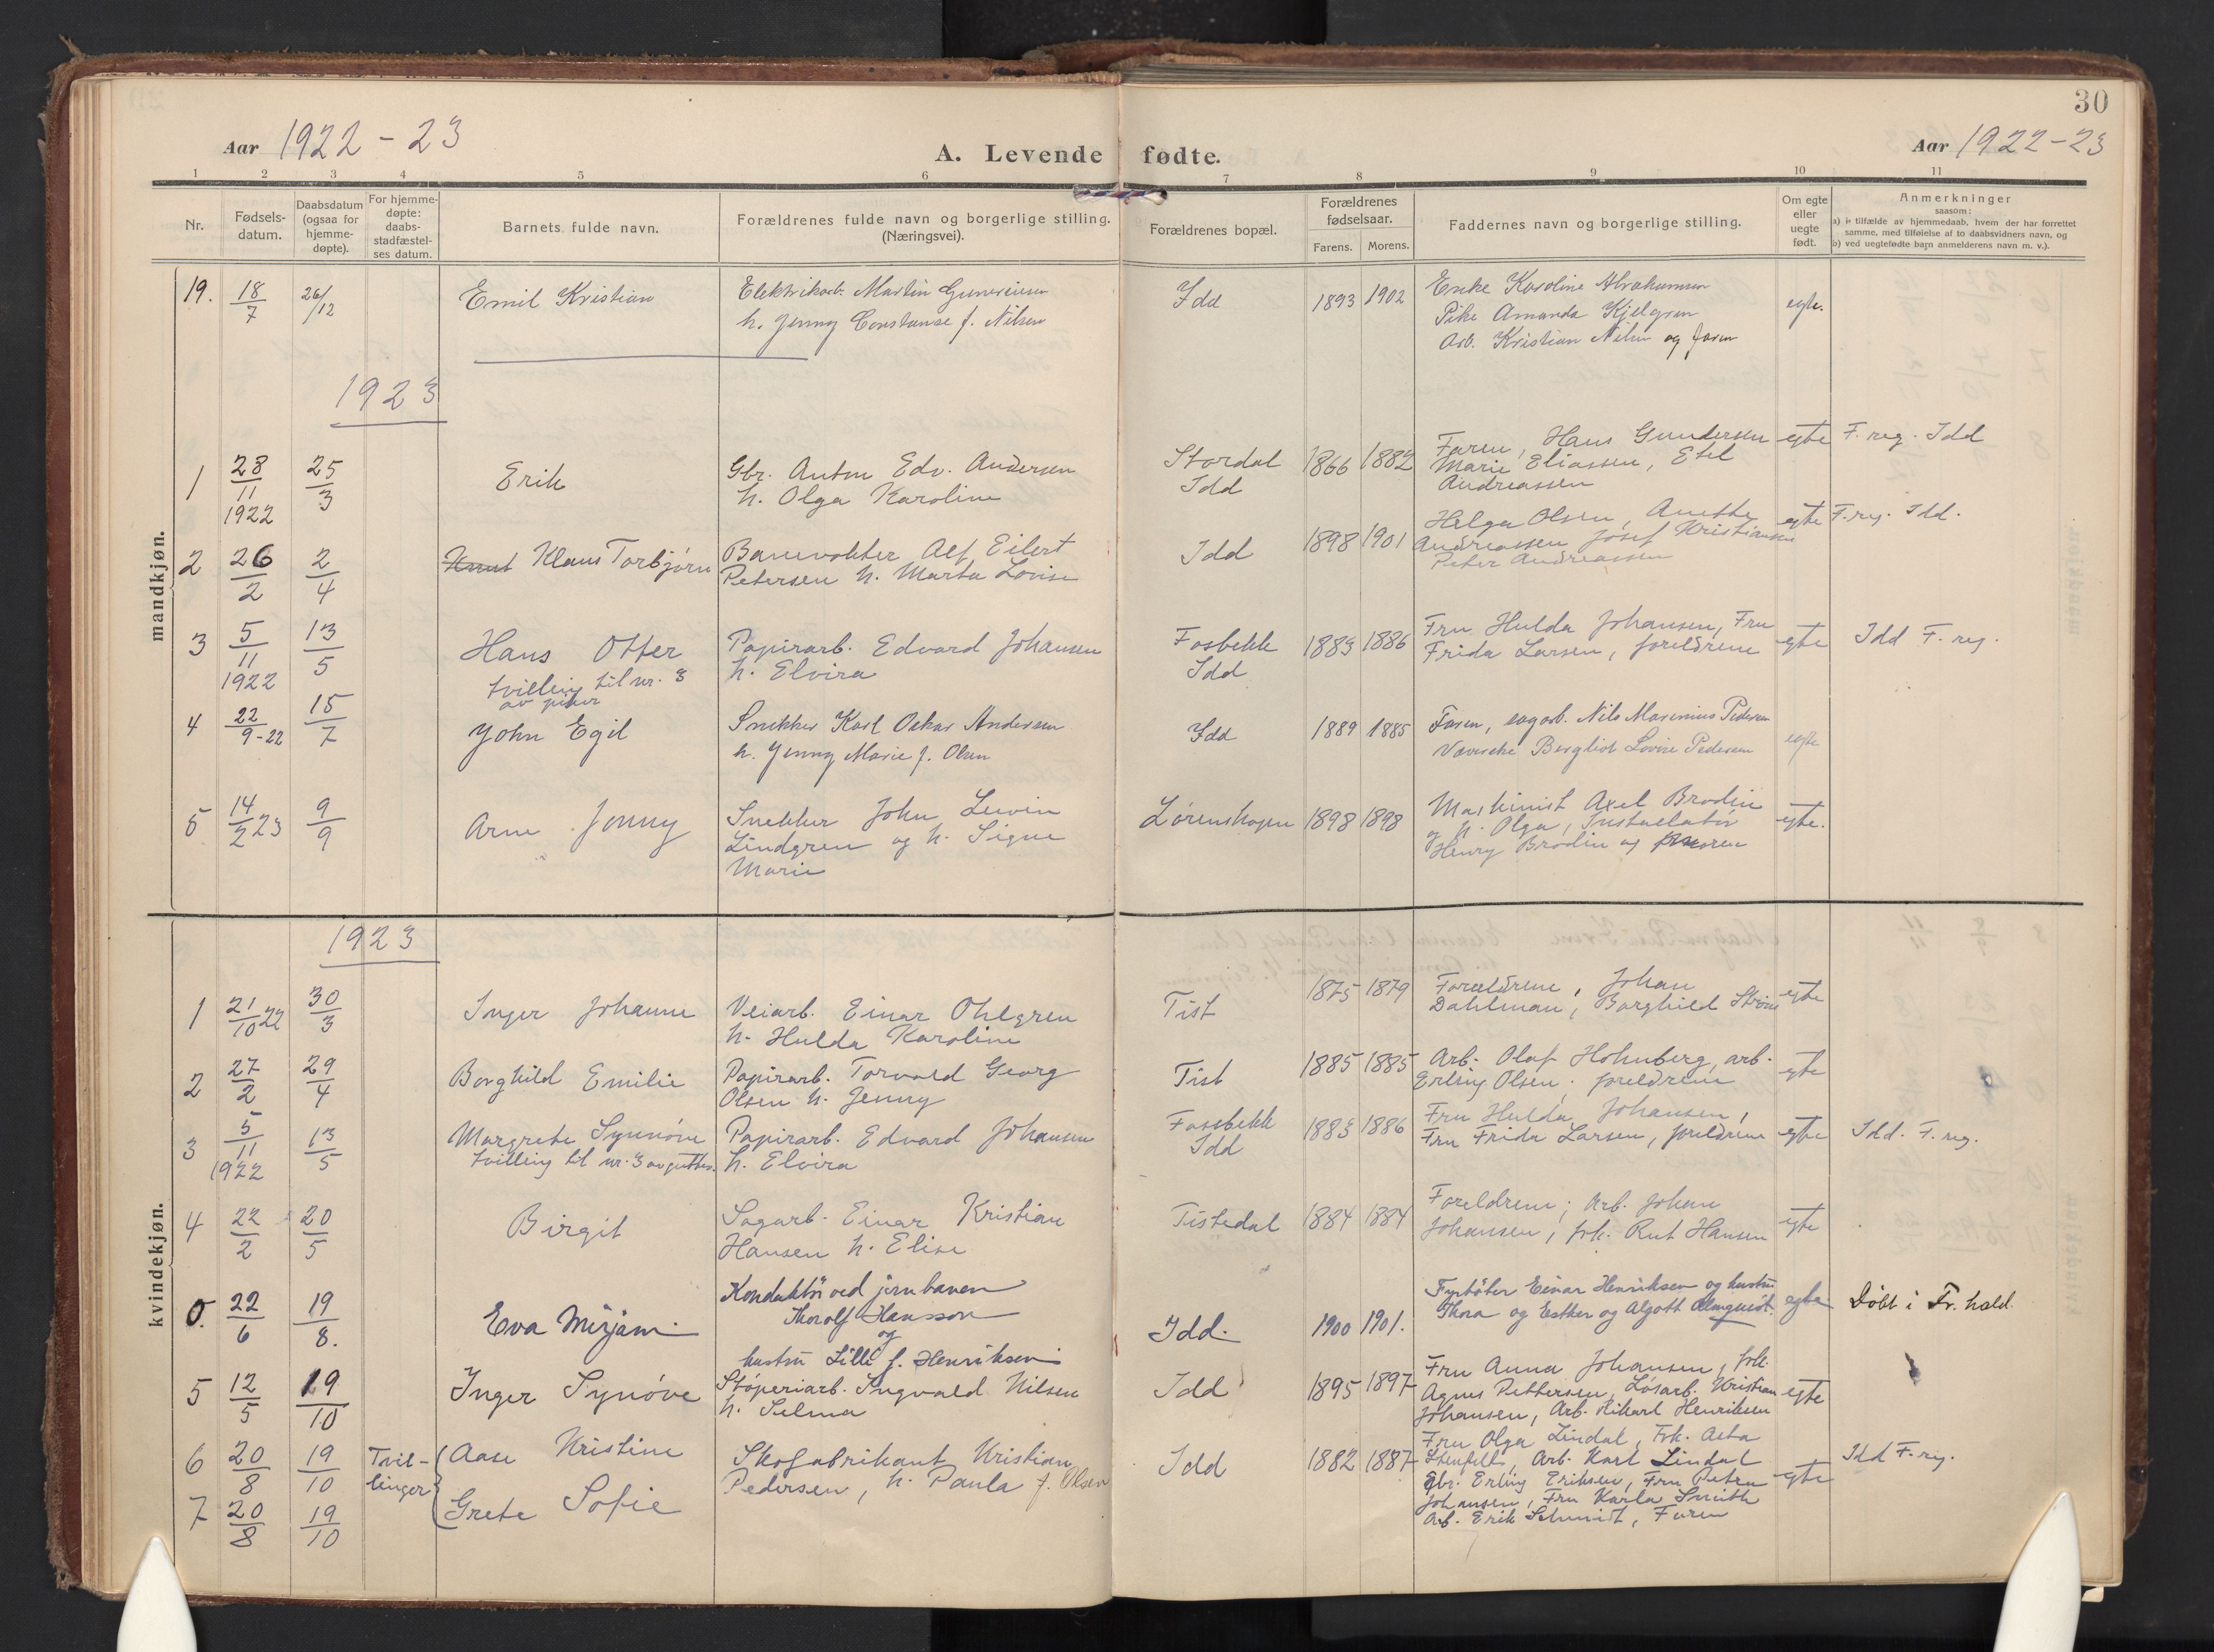 30
Aar 1922-23
A. Levende fødte.
Aar 1922-23
1 2 3 4 5 6 7 8 9 10 11
Nr.
Fødsels-
datum.
Daabsdatum
(ogsaa for
hjemme-
døpte).
For hjemme-
døpte:
daabs-
stadfæstel-
ses datum.
Barnets fulde navn.
Forældrenes fulde navn og borgerlige stilling.
(Næringsvei).
Forældrenes bopæl.
Forældrenes
fødselsaar.
Farens. Morens.
Faddernes navn og borgerlige stilling.
Om egte
eller
uegte
født.
Anmerkninger
saasom:
a) i tilfælde av hjemmedaab, hvem der har forrettet
samme, med tilføielse af to daabsvidners navn, og
b) ved uegtefødte barn anmelderens navn m. v.).
mandkjøn.
19. 18/7 26/12 Emil Kristian
Martin
h. Jenny Constanse f. Nilsen
Idd 1893 1902
Enke Karoline Abrahamsen
Pike Amanda Kjelgren
Arb. Kristian Nilsen og faren
egte.
1923
1 28/11 1922 25/3 Erik
Gbr. Anton Edv. Andersen
h. Olga Karoline
Stordal
Idd
1866 1882
Faren, Hans Gundersen
Marie Eliassen, Etel
Andreassen
egte F. reg. Idd
2 26/2 2/4 Knut Klaus Torbjørn
Banevokter Alf Eilert
Petersen h. Marta Lovise
Idd 1898 1901
Helga Olsen, Anette
Andreassen Josef Kristiansen
Peter Andreassen
egte F. reg. Idd.
3 5/11 1922 13/5 Hans Otter
tvilling til nr. 3
av piker
Papirarb. Edvard Johansen
h. Elvira
Fosbekk
Idd
1883 1886
Fru Hulda Johansen, Fru
Frida Larsen, foreldrene
egte Idd F. reg.
4 22/9-22 15/7 John Egil
Snekker Karl Oskar Andersen
h. Jenny Marie f. Olsen
Idd 1889 1885
Faren, sagarb. Nils Marenius Pedersen
Bergliot Lovise Pedersen
egte
5 14/2 23 9/9 Arne Jonny
Snekker John Levin
Lindgren og h. Signe
Marie
Lørenshagen 1898 1898
Maskinist Axel Brodin
og h. Olga, Installatør
Henry Brodin og
egte.
kvindekjøn.
1923
1 21/10 22 30/3 Inger Johanne
Veiarb. Einar Ohlgren
h. Hulda Karoline
Tist 1875 1879
Foreldrene, Johan
Dahlman, Borghild
egte
2 27/2 29/4 Borghild Emilie
Papirarb. Torvald Georg
Olsen h. Jenny
Tist 1885 1885
Arb. Olaf Holmberg, arb.
Erling Olsen. foreldrene
egte
3 5/11 1922 13/5 Margrete Synnøve
tvilling til nr. 3 av gutter.
Papirarb. Edvard Johansen
h. Elvira
Fossbekk
Idd
1883 1886
Fru Hulda Johansen,
Fru Frida Larsen, foreldrene
egte Idd. F. reg.
4 22/2 20/5 Birgit
Sagarb. Einar Kristian
Hansen h. Elise
Tistedal 1884 1884
Foreldrene; arb. Johan
Johansen, frk. Rut Hansen
egte
0. 22/6 19/8. Eva Mirjam
Konduktør ved jernbanen
Thorolf Hansson
og
hustru Lilli f. Henriksen
Idd. 1900 1901.
Fyrbøter Einar Henriksen og hustru
Thora og Esther og Algott Almquist.
egte Døbt i Fr.hald.
5 12/5 19/10 Inger Synøve
Støperiarb. Ingvald Nilsen
h. Selma
Idd 1895 1897
Fru Anna Johansen, frk.
Agnes Pettersen, Løsarb. Kristian
Johansen, Arb. Rikart Henriksen
egte
6 20/8 19/10 Tvil-
linger
Aase Kristine
7 20/8 19/10 Grete Sofie
Skofabrikant Kristian
Pedersen, h. Paula f. Olsen
Idd 1882 1887
Fru Olga Lindal, Frk. Asta
Stenfelt, Arb. Karl Lindal
Gbr. Erling Eriksen, Fru Petra
Johansen, Fru Karla Smith
Arb. Erik Schmidt, Faren
egte Idd F. reg.